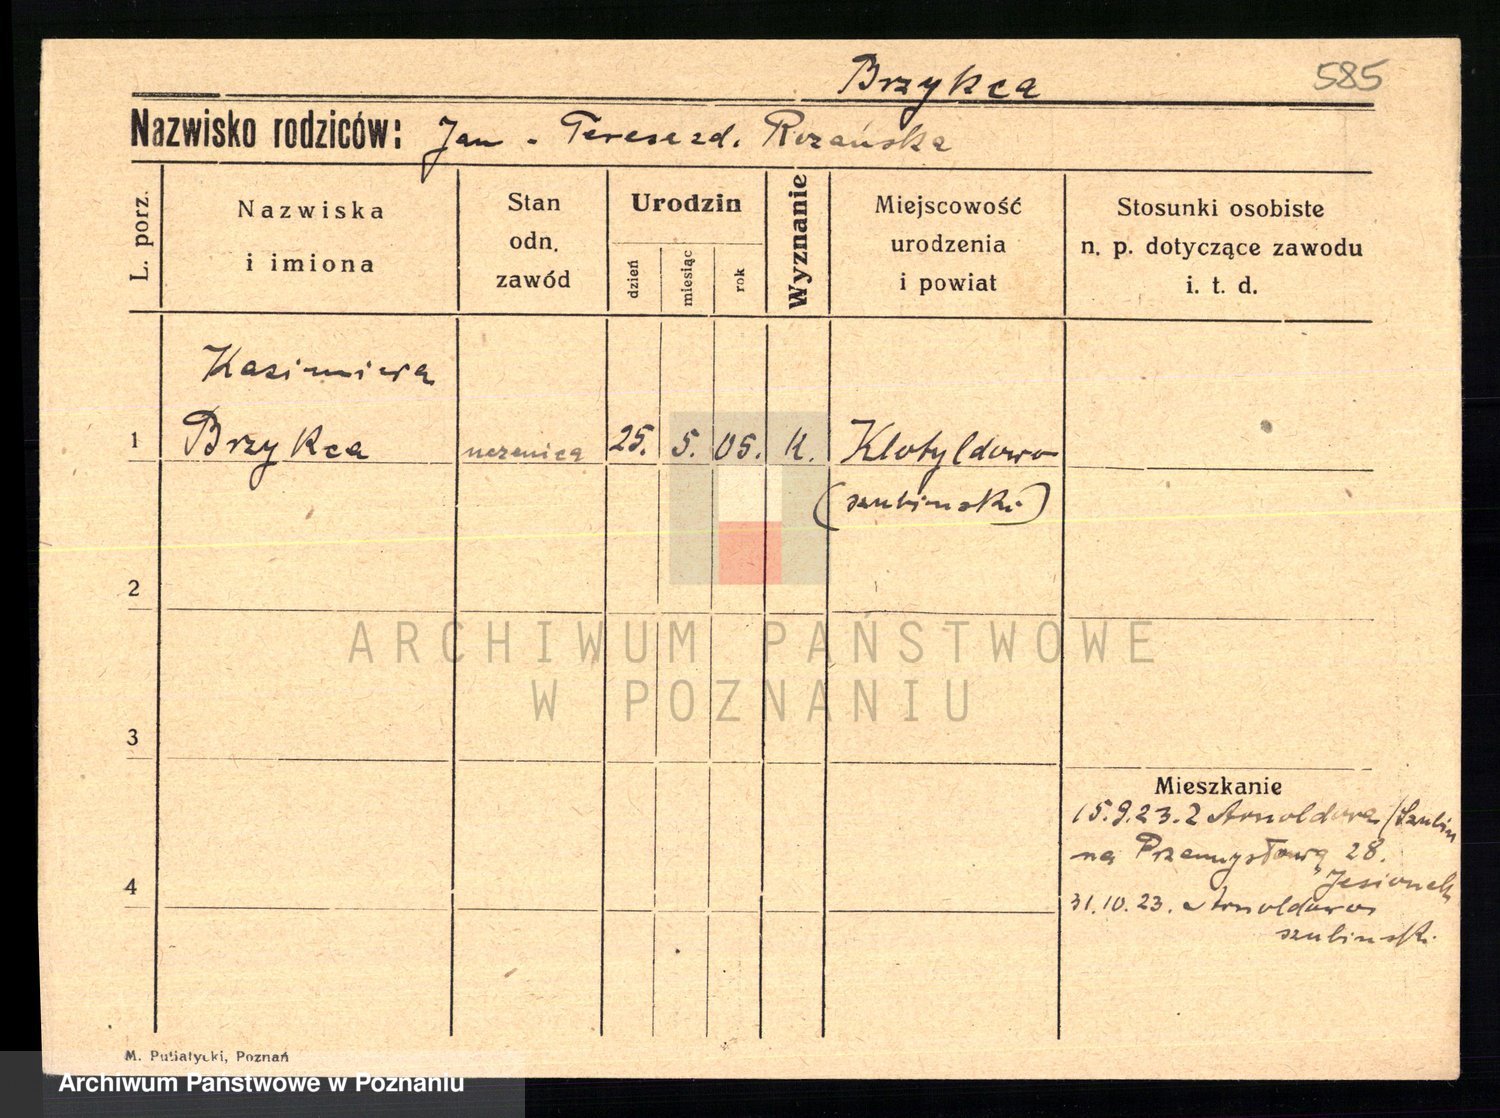 Brzykca 585
Nazwisko rodziców: Jan - Teresa zd. Rozańska
L. porz.
Nazwiska
i imiona
Stan
odn.
zawód
Urodzin
dzień
miesiąc
rok
Wyznanie
Miejscowość
urodzenia
i powiat
Stosunki osobiste
n. p. dotyczące zawodu
i. t. d.
Kazimiera
1 Brzykca uczenica 25. 5. 05. k. Klotyldowo
(szubinski)
2
3
4
Mieszkanie
15.9.23. z Arnoldowa /Szubin
na Przemysłową 28.
Jesionek
31.10.23. Arnoldowo
szubinski.
M. Putiatycki, Poznań
ARCHIWUM PAŃSTWOWE
W POZNANIU
Archiwum Państwowe w Poznaniu